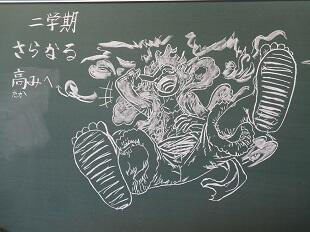 二学期
さらなる
高みへ
たか